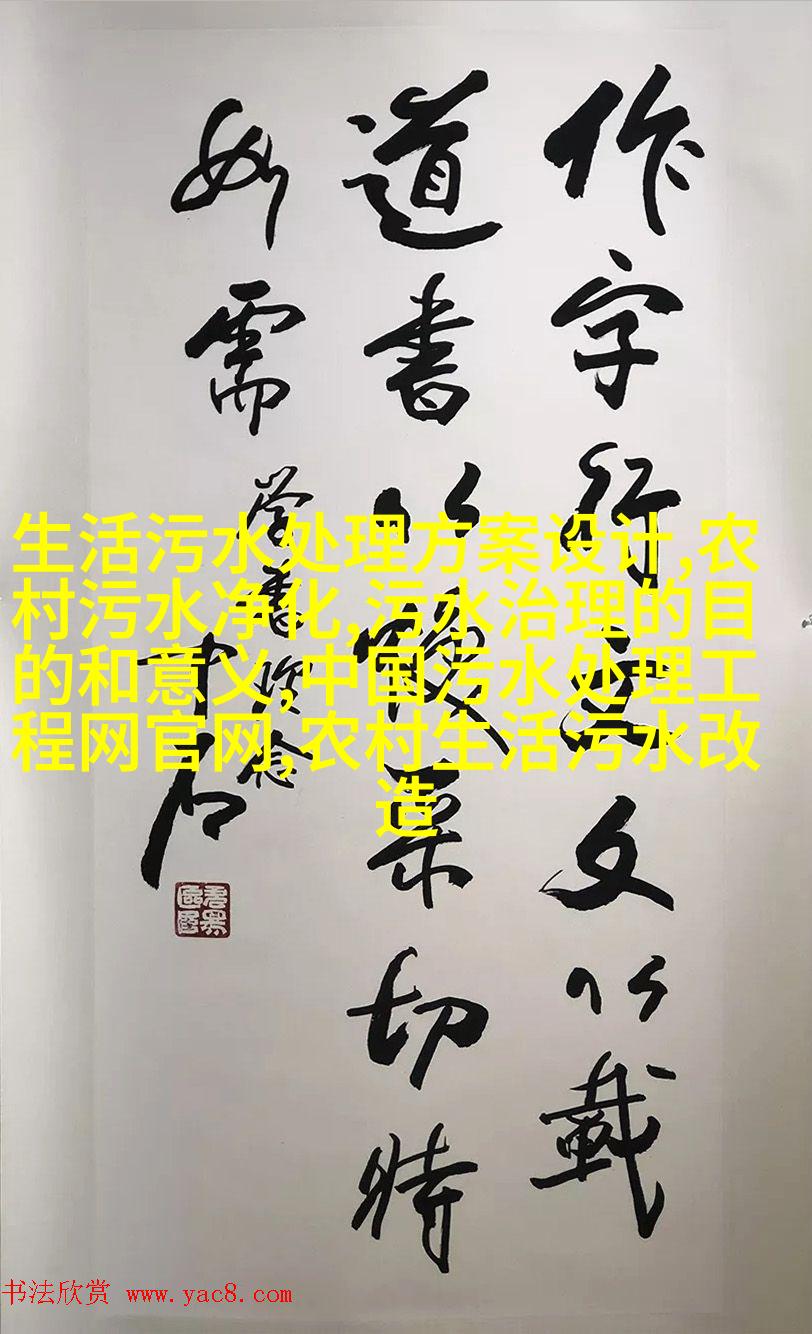 作字行文文以載
道書以煥采切時
如需
学書
中石
生活污水处理方案设计,农
村污水净化,污水治理的目
的和意义,中国污水处理工
程网官网,农村生活污水改
造
书法欣赏 www.yac8.com